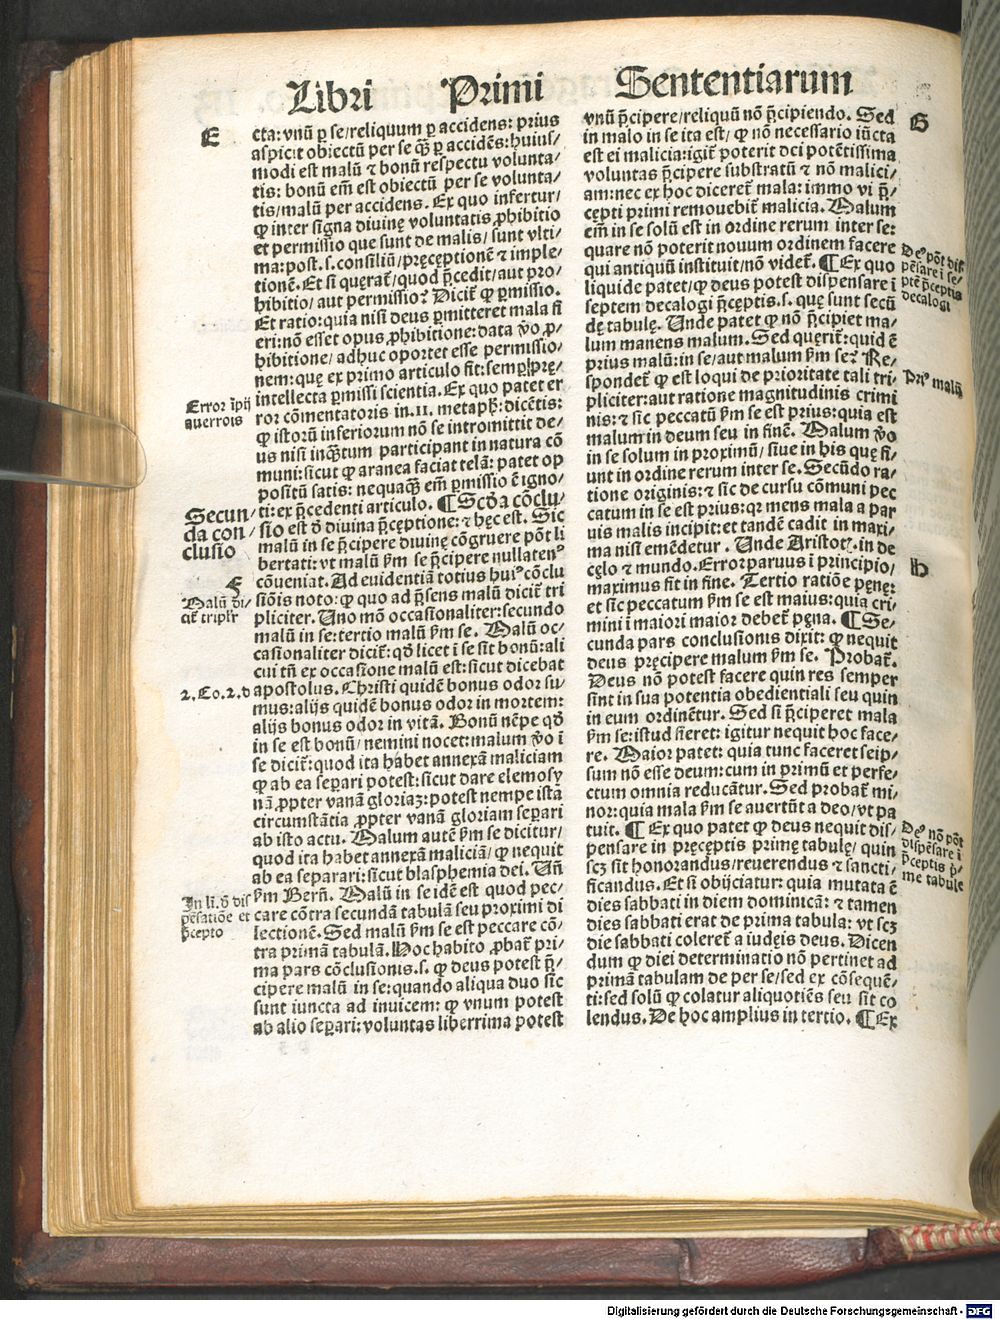 Libri Primi Sententiarum
E
eta: vnũ ꝑ se/reliquum ꝑ accidens: prius
aspicit obiectũ per se qȝ̃ ꝑ accidẽs: huius/
modi est malũ ⁊ bonũ respectu volunta/
tis: bonũ em̃ est obiectũ per se volunta/
tis/malũ per accidens. Ex quo infertur/
ꝙ inter signa diuinę voluntatis ꝓhibitio
et permissio que sunt de malis/ sunt vlti/
ma: post .s. consiliũ/ pręceptionẽ ⁊ imple/
tionẽ. Et si quęrat᷑/ quod p̃cedit/aut pro/
hibitio/ aut permissio? Dicit᷑ ꝙ ꝑmissio.
Et ratio: quia nisi deus ꝑmitteret mala fi
eri: nõ esset opus ꝓhibitione: data ṽo ꝓ/
hibitione/ adhuc oportet esse permissio/
nem: quę ex primo articulo fit: semp̱ prę/
intellecta ꝑmissi scientia. Ex quo patet er
Error ĩpij
auerrois
ror cõmentatoris in .11. metapħ: dicẽtis:
ꝙ istorũ inferiorum nõ se intromittit de/
us nisi inqȝ̃tum participant in natura cõ
muni: sicut ꝙ aranea faciat telã: patet op
positũ satis: nequaqȝ̃ em̃ ꝑmissio ẽ igno/
ti: ex p̃cedenti articulo. ¶ Scḋa cõclu/
Secun/
da con/
clusio
sio est ḋ diuina p̃ceptione: ⁊ hęc est. Sic
malũ in se p̃cipere diuinę cõgruere põt li
bertati: vt malũ ẜm se p̃cipere nullatenꝰ
F
cõueniat. Ad euidentiã totius huiꝰ cõclu
Malũ di/
cit᷑ triplr̃
siõis noto: ꝙ quo ad p̃sens malũ dicit᷑ tri
pliciter. Uno mõ occasionaliter: secundo
malũ in se: tertio malũ ẜm se. Malũ oc/
casionaliter dicit᷑: qḋ licet i se sit bonũ: ali
cui tñ ex occasione malũ est: sicut dicebat
2. Co. 2. d
apostolus. Christi quidẽ bonus odor su/
mus: alijs quidẽ bonus odor in mortem:
alijs bonus odor in vitã. Bonũ nẽpe qḋ
in se est bonũ/ nemini nocet: malum ṽo ĩ
se dicit᷑: quod ita habet annexã maliciam
ꝙ ab ea sep̱ari potest: sicut dare elemosy
nã ꝓpter vanã gloriaȝ: potest nempe istã
circumstãtia ꝓpter vanã gloriam sep̱ari
ab isto actu. Malum autẽ ẜm se dicitur/
quod ita habet annexã maliciã/ ꝙ nequit
ab ea separari: sicut blasphemia dei. Uñ
In li. ḋ dis
pẽsatiõe et
p̃cepto
ẜm Berñ. Malũ in se idẽ est quod pec/
care cõtra secundã tabulã seu proximi di
lectionẽ. Sed malũ ẜm se est peccare cõ/
tra primã tabulã. Hoc habito ꝓbat᷑ pri/
ma pars cõclusionis .s. ꝙ deus potest p̃/
cipere malũ in se: quando aliqua duo sic
sunt iuncta ad inuicem: ꝙ vnum potest
ab alio sep̱ari: voluntas liberrima potest
vnũ p̃cipere/reliquũ nõ p̃cipiendo. Sed
G
in malo in se ita est/ ꝙ nõ necessario iũcta
est ei malicia: igit᷑ poterit dci potẽtissima
voluntas p̃cipere substratũ ⁊ nõ malici/
am: nec ex hoc diceret᷑ mala: immo vi p̃/
cepti primi remouebit᷑ malicia. Malum
em̃ in se solũ est in ordine rerum inter se:
quare nõ poterit nouum ordinem facere
qui antiquũ instituit/ nõ videt᷑. ¶ Ex quo
Deꝰ põt dis
pẽsare ĩ se/
ptẽ p̃ceptis
decalogi
liquide patet/ ꝙ deus potest dispensare i
septem decalogi p̃ceptis .s. quę sunt secũ
dę tabulę. Unde patet ꝙ nõ p̃cipiet ma/
lum manens malum. Sed quęrit᷑: quid ẽ
prius malũ: in se/ aut malum ẜm se? Re/
Priꝰ malũ
spondet᷑ ꝙ est loqui de prioritate tali tri/
pliciter: aut ratione magnitudinis crimi
nis: ⁊ sic peccatũ ẜm se est prius: quia est
malum in deum seu in finẽ. Malum ṽo
in se solum in proximũ/ siue in his quę fi/
unt in ordine rerum inter se. Secũdo ra/
tione originis: ⁊ sic de cursu cõmuni pec
catum in se est prius: qr mens mala a par
uis malis incipit: et tandẽ cadit in maxi/
ma nisi emẽdetur. Unde Aristot̃. in de
cęlo ⁊ mundo. Error paruus i principio/
H
maximus fit in fine. Tertio ratiõe pęnę:
et sic peccatum ẜm se est maius: quia cri/
mini i maiori maior debet᷑ pęna. ¶ Se/
cunda pars conclusionis dixit: ꝙ nequit
deus pręcipere malum ẜm se. Probat᷑.
Deus nõ potest facere quin res semper
sint in sua potentia obedientiali seu quin
in eum ordinẽtur. Sed si p̃ciperet mala
ẜm se: istud fieret: igitur nequit hoc face/
re. Maior patet: quia tunc faceret seip/
sum nõ esse deum: cum in primũ et perfe/
ctum omnia reducãtur. Sed probat᷑ mi/
nor: quia mala ẜm se auertũt a deo/ vt pa
tuit. ¶ Ex quo patet ꝙ deus nequit dis/
Deꝰ nõ põt
dispẽsare ĩ
p̃ceptis p̃/
me tabule
pensare in pręceptis primę tabulę/ quin
scȝ sit honorandus/ reuerendus ⁊ sancti/
ficandus. Et si obijciatur: quia mutata ẽ
dies sabbati in diem dominicã: ⁊ tamen
dies sabbati erat de prima tabula: vt scȝ
die sabbati coleret᷑ a iudeis deus. Dicen
dum ꝙ diei determinatio nõ pertinet ad
primã tabulam de per se/ sed ex cõsequẽ/
ti: sed solũ ꝙ colatur aliquotiẽs seu sit co
lendus. De hoc amplius in tertio. ¶ Ex
Digitalisierung gefördert durch die Deutsche Forschungsgemeinschaft - DFG